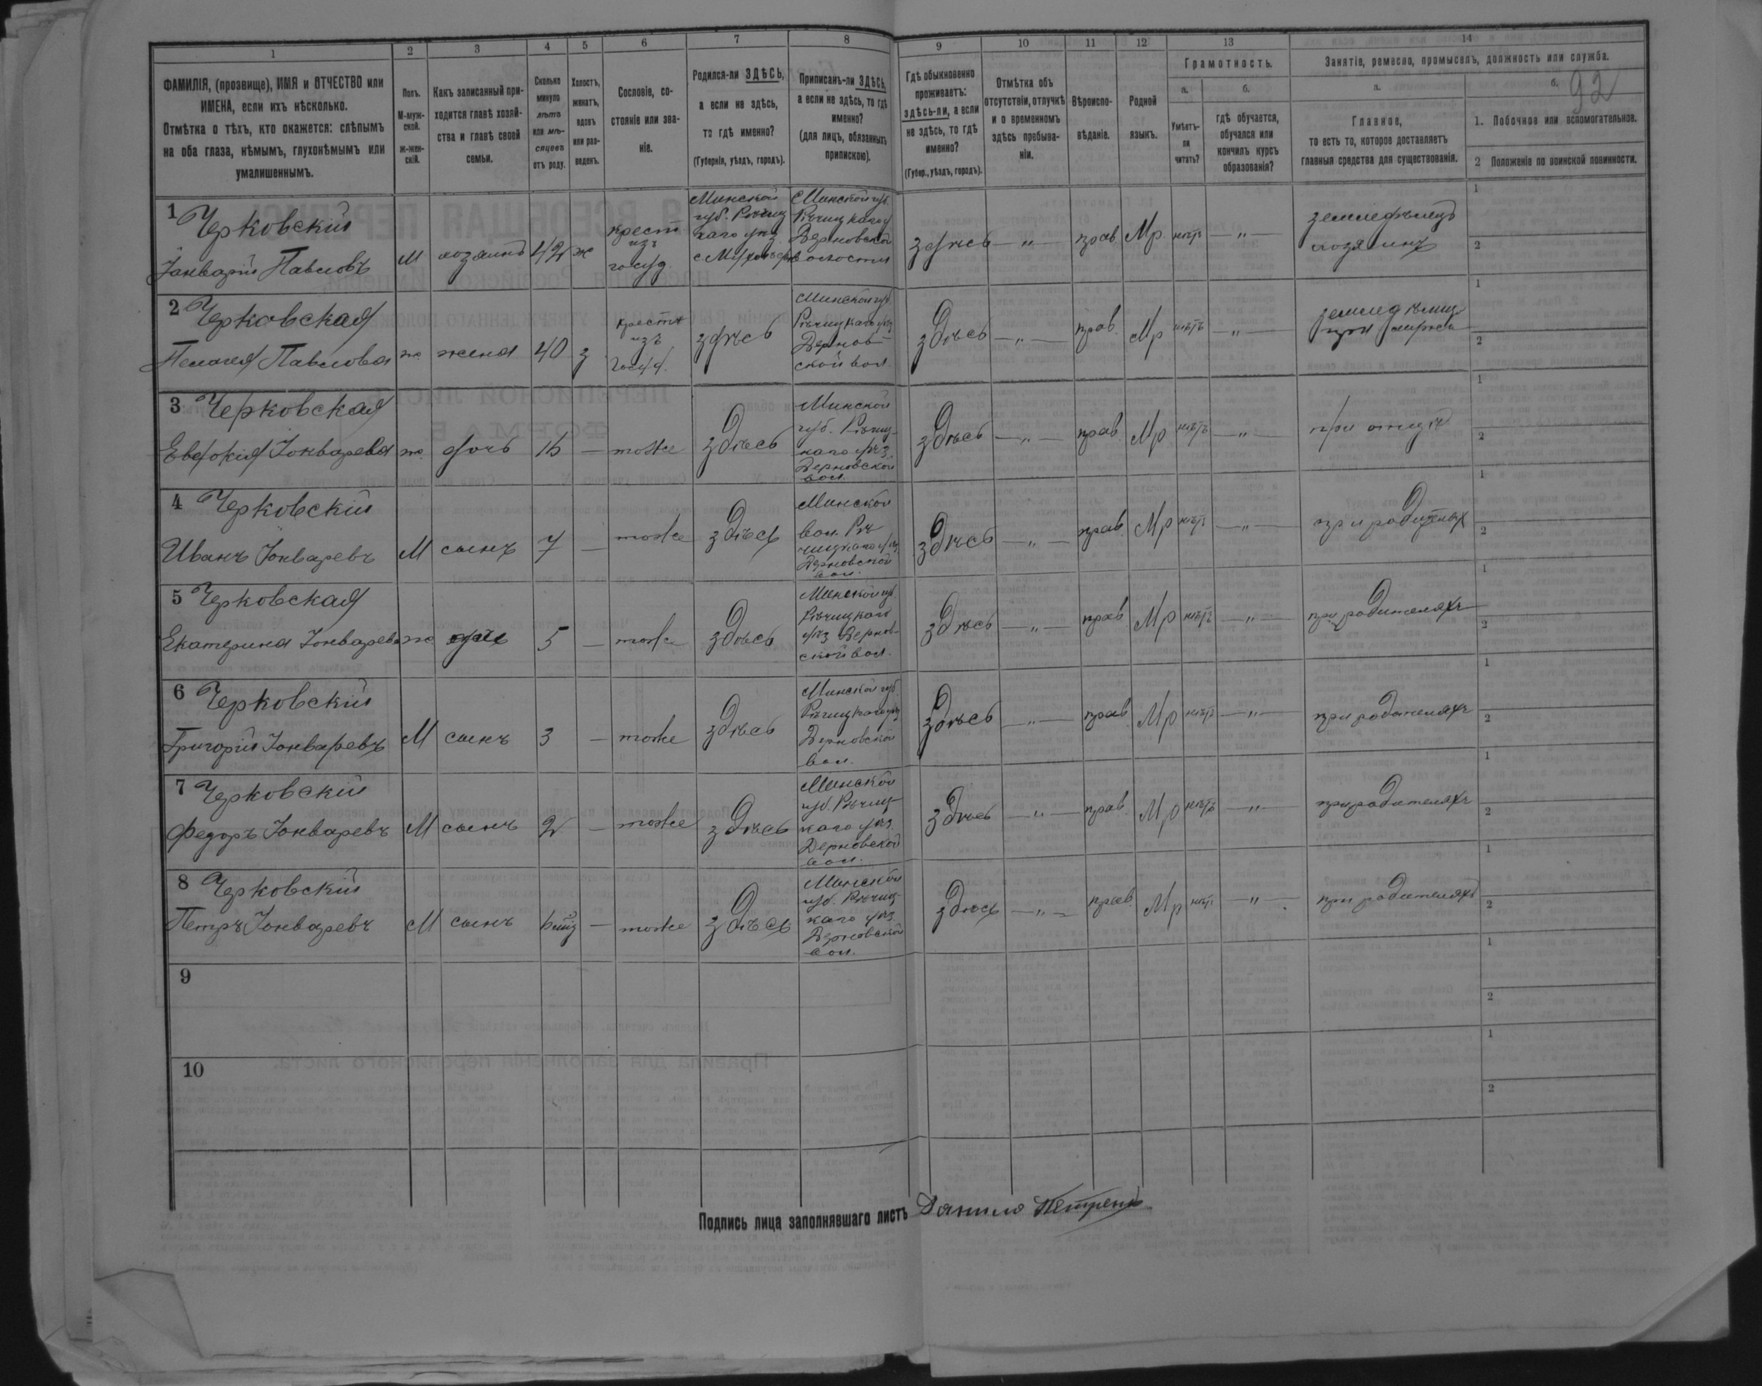 1 2 3 4 5 6 7 8 9 10 11 12 13 14
ФАМИЛІЯ, (прозвище), ИМЯ и ОТЧЕСТВО или ИМЕНА, если ихъ нѣсколько.
Отмѣтка о тѣхъ, кто окажется: слѣпымъ на оба глаза, нѣмымъ, глухонѣмымъ или умалишеннымъ.
Полъ.
М-муж-ской.
Ж-жен-скій.
Какъ записанный при-ходится главѣ хозяй-ства и главѣ своей семьи.
Сколько минуло лѣтъ или мѣ-сяцевъ отъ роду.
Холостъ, женатъ, вдовъ или раз-веденъ.
Сословіе, со-стояніе или зва-ніе.
Родился-ли ЗДѢСЬ,
а если не здѣсь,
то гдѣ именно?
(Губернія, уѣздъ, городъ).
Приписанъ-ли ЗДѢСЬ,
а если не здѣсь, то гдѣ именно?
(для лицъ, обязанныхъ припискою).
Гдѣ обыкновенно проживаетъ:
здѣсь-ли, а если не здѣсь, то гдѣ именно?
(Губер., уѣздъ, городъ).
Отмѣтка объ отсутствіи, отлучкѣ и о временномъ здѣсь пребыва-ніи.
Вѣроиспо-вѣданіе.
Родной языкъ.
Грамотность.
а.
Умѣетъ-ли читать?
б.
гдѣ обучается, обучался или кончилъ курсъ образованія?
Занятіе, ремесло, промыселъ, должность или служба.
а.
Главное,
то есть то, которое доставляетъ главныя средства для существованія.
б.
92
1. Побочное или вспомогательное.
2 Положеніе по воинской повинности.
1 Черковскій
Іанварій Павловъ
М хозяинъ 42 ж
крест
изъ
госуд
Минской
губ. Рѣчиц
каго уѣз
Минской губ.
Рѣчицкаго
Дерновской
волости
здѣсь — „ — прав Мр нѣтъ — „ —
земледѣлецъ
хозяинъ
1
2
2 Черковская
Пелагея Павлова
ж жена 40 з
крестья
изъ
Госуд.
здѣсь
Минской губ
Рѣчицкаго уѣз
Дернов
ской вол
здѣсь — „ — прав. Мр нѣтъ — „ —
земледѣлец
при мужѣ
1
2
3 Черковская
Евдокія Іонварева ж. дочь 16 — тоже здѣсь
Минской
губ. Рѣчиц-
каго уѣз.
Дерновской
вол.
здѣсь — „ — прав Мр. нѣтъ — „ —
при отцѣ
1
2
4 Черковскій
Иванъ Іонваревъ М сынъ 7 — тоже здѣсь
Минской
вол. Рѣ
чицкаго уѣз.
Дерновской
вол.
здѣсь — „ — прав. Мр нѣтъ — „ —
при родителях
1
2
5 Черковская
Екатерина Іонварева ж дочь 5 — тоже здѣсь
Минской губ.
Рѣчицкаго
уѣз Дернов
ской вол.
здѣсь — „ — прав Мр нѣтъ — „ —
при родителяхъ
1
2
6 Черковскій
Григорій Іонваревъ М сынъ 3 — тоже здѣсь
Минской губ.
Рѣчицкаго уѣз
Дерновской
вол.
здѣсь — „ — прав Мр нѣтъ — „ —
при родителяхъ
1
2
7 Черковскій
Федоръ Іонваревъ М сынъ 2 — тоже здѣсь
Минской
губ. Рѣчиц-
каго уѣз.
Дерновской
вол.
здѣсь — „ — прав. Мр нѣтъ — „ —
при родителяхъ
1
2
8 Черковскій
Петръ Іонваревъ М сынъ — тоже здѣсь
Минской
губ. Рѣчиц
каго уѣз
Дерновской
вол.
здѣсь — „ — прав. Мр нѣтъ — „ —
при родителяхъ
1
2
9
1
2
10
1
2
Подпись лица заполнявшаго листъ Данило